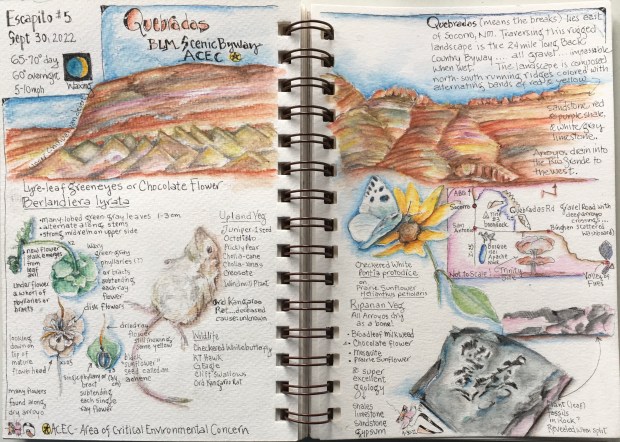 Escapito #5
Sept 30, 2022
65-70° day
60° overnight
5-10mph
Waxing
Quebradas
BLM Scenic Byway
ACEC
Lyre-leaf greeneyes or Chocolate Flower
Berlandiera lyrata
• many lobed green gray leaves 1-3 cm
• alternate along stems
• strong midrein on upper side
new flower
emerges
from
leaf
axil
under flower
a whorl of
phyllaries or
bracts
wavy
green-gray
phyllaries
or bracts
subtending
each ray
flower
disk flowers
dried ray
flower
still showing
some yellow
looking down
on top of
mature
flower head
black
"sunflower"
seed called an
achene
single phyllary or
bract
subtending
each single
ray flower
many flowers
found along
dry arroyo
Upland Veg
Juniper-1 seed
Ocotillo
Prickly Pear
Cholla-cane
Creosote
Ord Kangaroo
Rat...deceased
cause unknown
Wildlife
Checkered White butterfly
RT Hawk
Cliff Swallows
Ord Kangaroo Rat
ACEC - Area of Critical Environmental Concern
Quebradas (means the breaks) lies east
of Socorro, NM. Traversing this rugged
landscape is the 24 mile long Back
Country Byway... all gravel... impassable
when wet! The landscape is composed
north-south running ridges colored with
alternating bands of reds & yellow...
sandstone, red
& purple shale
& white gray
limestone.
Arroyos drain into
the Rio Grande to
the west.
Checkered White
Pontia protodice
on
Prairie Sunflower
Helianthus petiolaris
Riparian Veg
All Arroyos dry
as a bone!
• Broadleaf milkweed
• Chocolate flower
• Mesquite
• Prairie Sunflower
super
excellent
geology
shales
limestone
sandstone
gypsum
ABQ
Socorro
San Antonio
Quebradas Rd
Gravel Road with
deep arroyo
crossings...
Not to Scale
Trinity
Site
Valley of
Fires
Plant (leaf)
fossils
in Rock?
Revealed when split